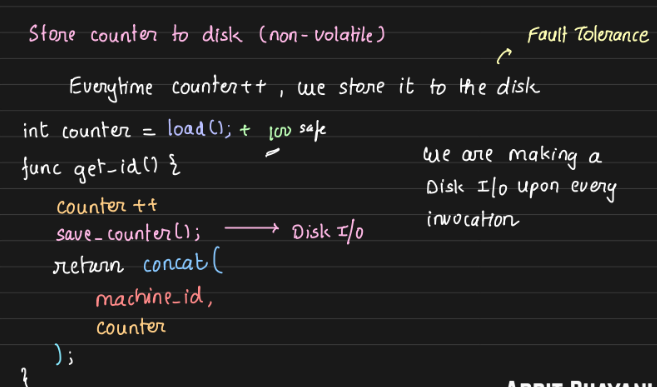 Store counter to disk (non-volatile)
Fault Tolerance
Everytime counter++, we store it to the disk
int counter = load(); + 100 safe
func get_id() {
counter ++
save_counter(); → Disk I/o
return concat(
machine_id,
counter
);
}
we are making a
Disk I/o upon every
invocation